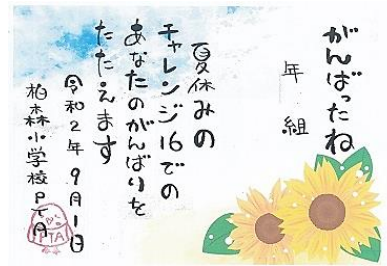 がんばったね
年 組
夏休みの
チャレンジ16での
あなたのがんばりを
たたえます
令和2年9月1日
柏森小学校PTA
PTA